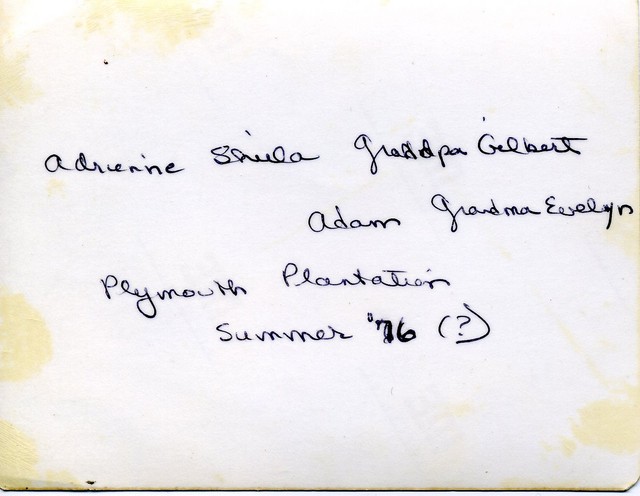 Adrienne Sheila Grandpa Gilbert
Adam Grandma Evelyn
Plymouth Plantation
Summer '76 (?)